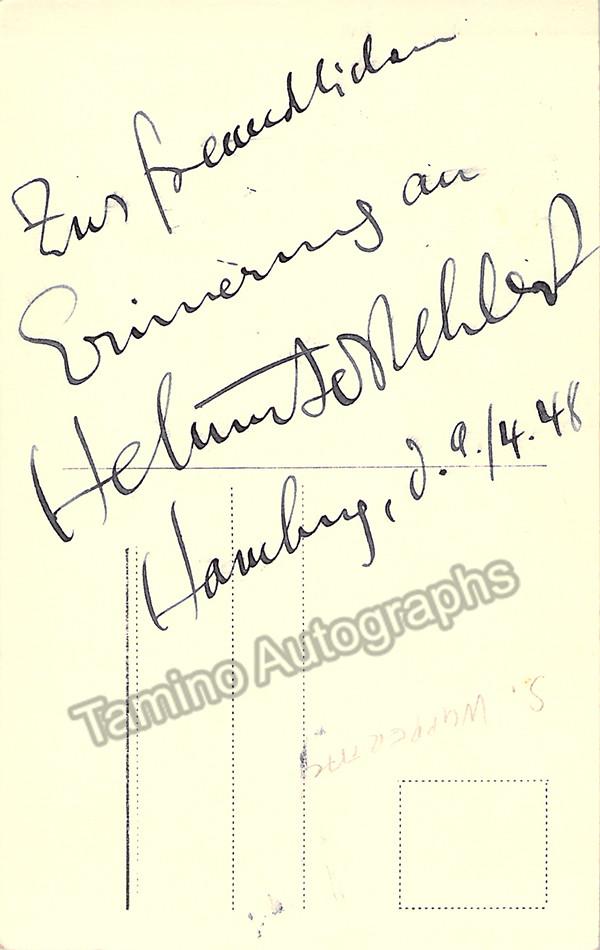 Zur freundlichen
Erinnerung an
Helmut Melchert
Hamburg, d. 9./4.48
Tamino Autographs